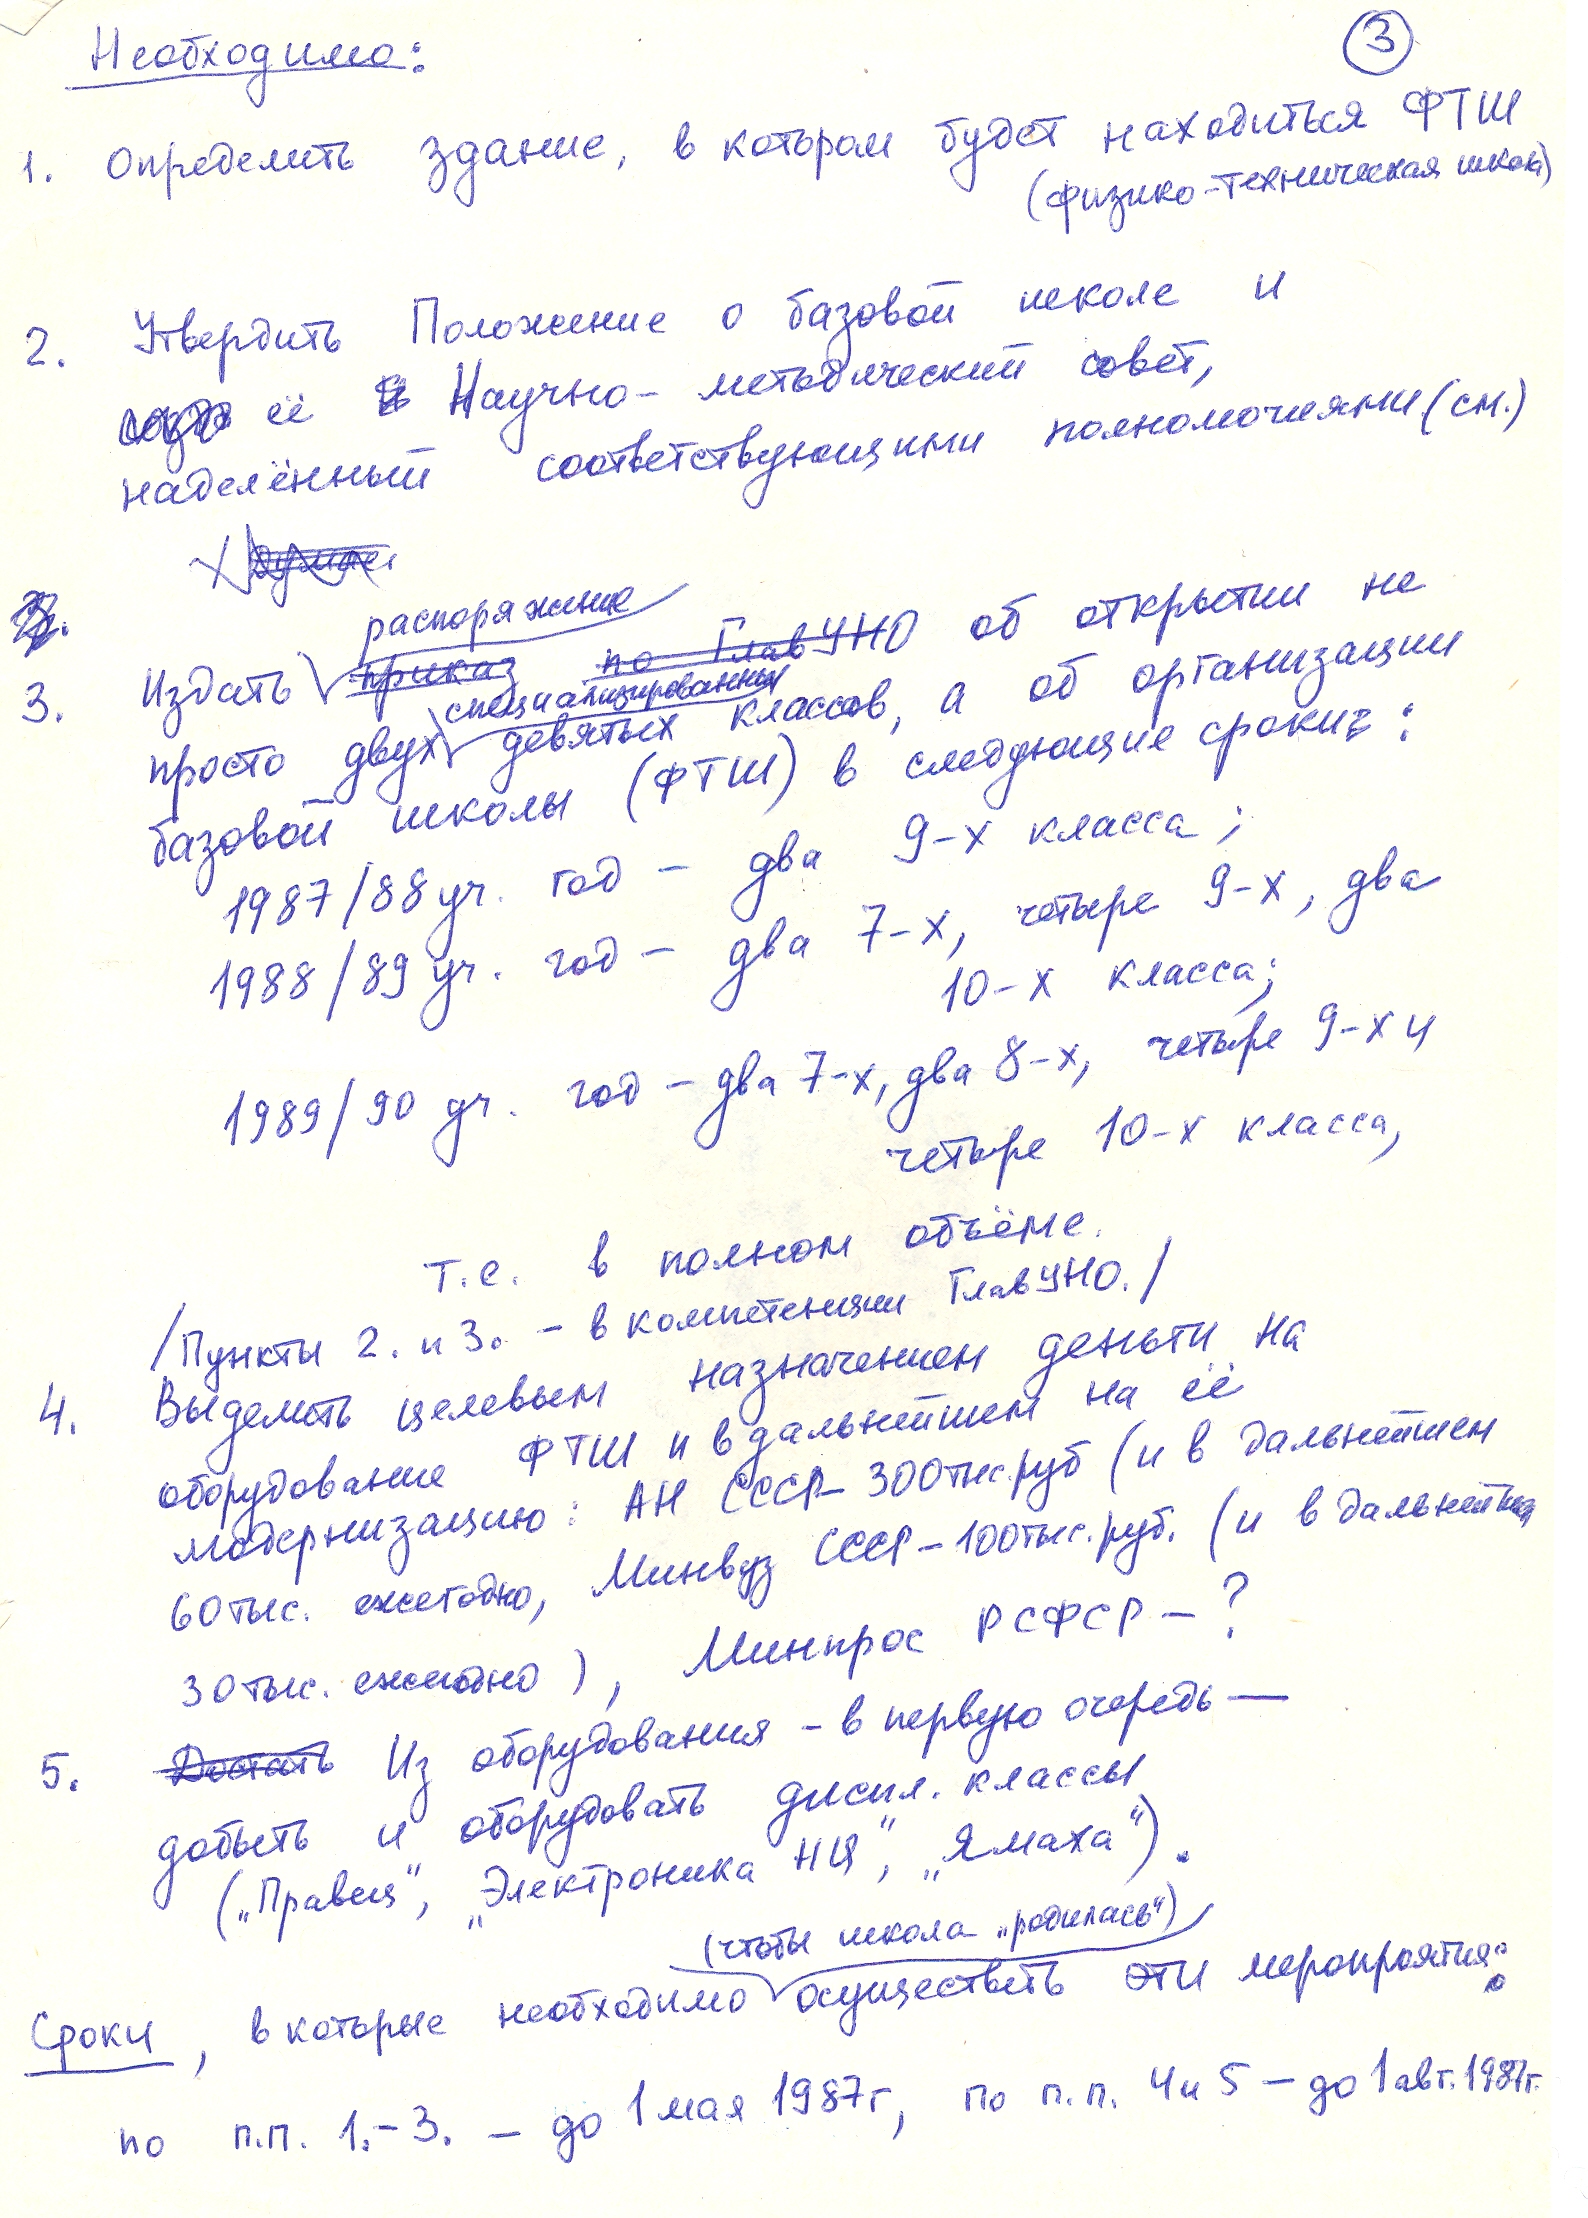 Необходимо:
3
1. Определить здание, в котором будет находиться ФТШ
(физико-техническая школа)
2. Утвердить Положение о базовой школе и
её Научно-методический совет,
наделённый соответствующими полномочиями (см.)
распоряжение
3. Издать приказ по ГлавУНО об открытии не
специализированных
просто двух девятых классов, а об организации
базовой школы (ФТШ) в следующие сроки:
1987/88 уч. год – два 9-х класса;
1988/89 уч. год – два 7-х, четыре 9-х, два
10-х класса;
1989/90 уч. год – два 7-х, два 8-х, четыре 9-х и
четыре 10-х класса,
т.е. в полном объёме.
/Пункты 2. и 3. – в компетенции ГлавУНО./
4. Выделить целевым назначением деньги на
оборудование ФТШ и в дальнейшем на её
модернизацию: АН СССР – 300 тыс. руб (и в дальнейшем
60 тыс. ежегодно, Минвуз СССР – 100 тыс. руб. (и в дальнейшем
30 тыс. ежегодно), Минпрос РСФСР – ?
5. Достать Из оборудования – в первую очередь —
добыть и оборудовать диспл. классы
(„Правец“, „Электроника НЦ“, „Ямаха“).
(чтобы школа „родилась“)
Сроки, в которые необходимо осуществить эти мероприятия:
по п.п. 1.–3. – до 1 мая 1987г, по п.п. 4 и 5 – до 1 авг. 1987г.